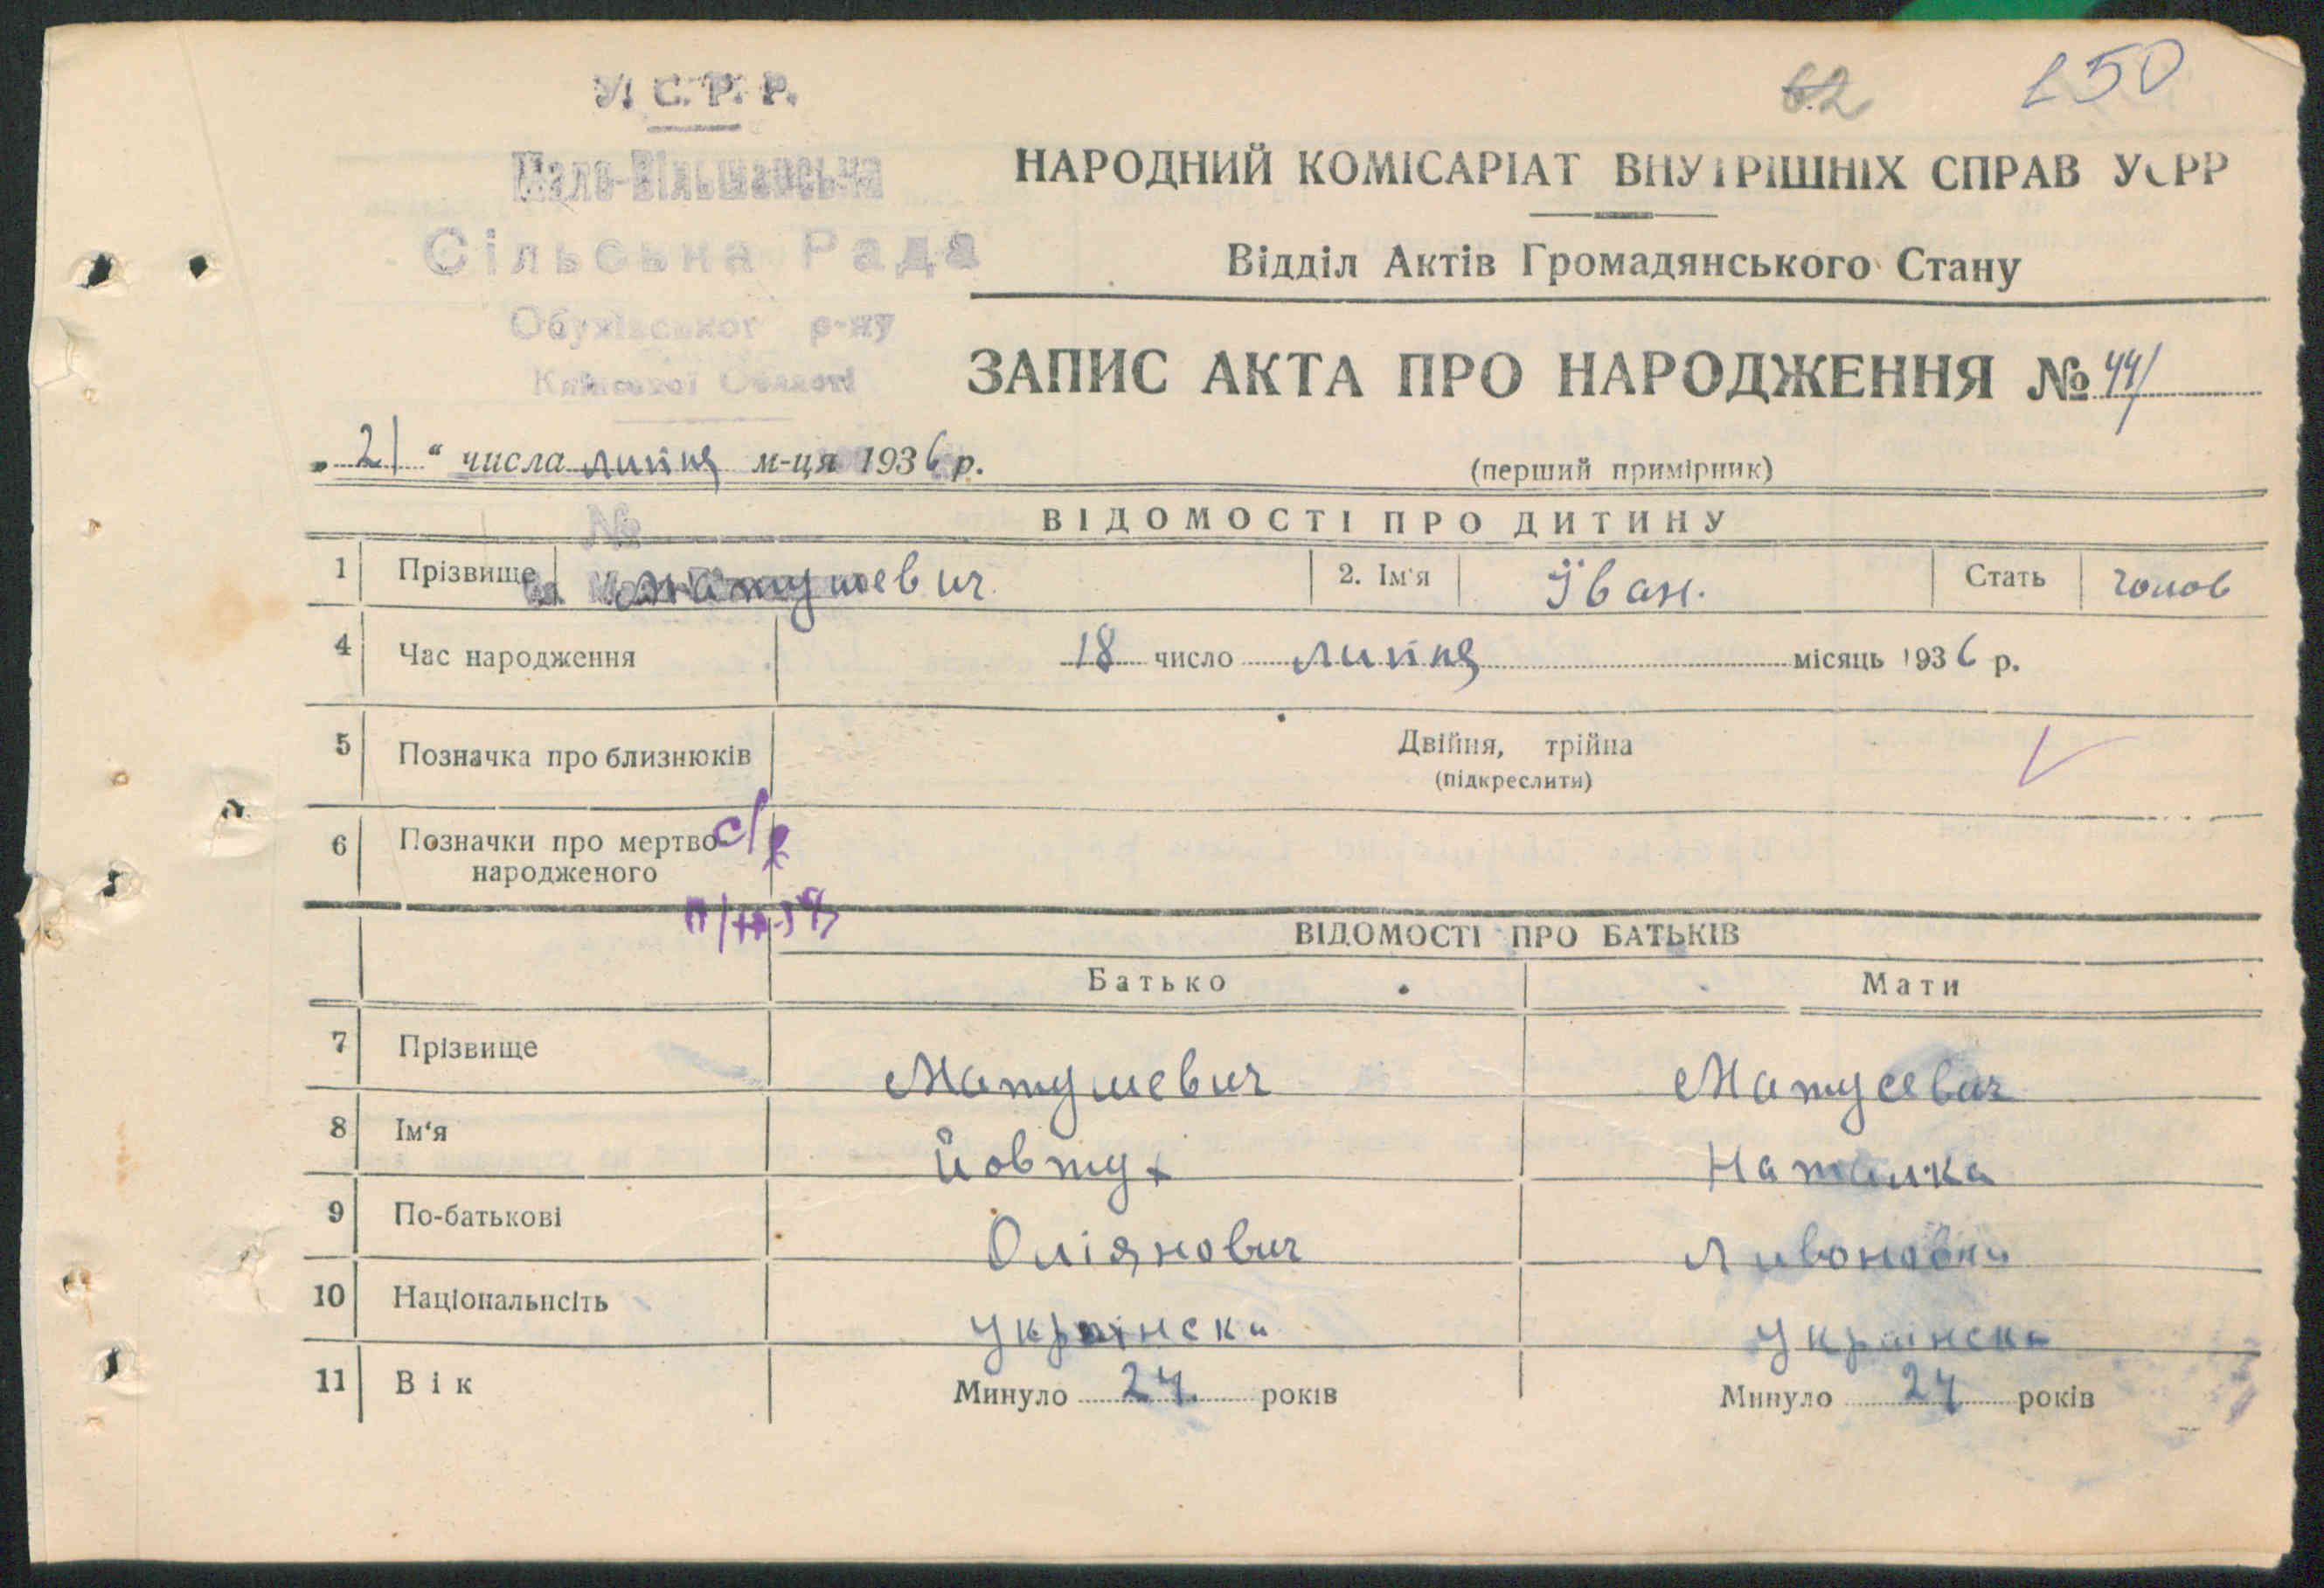 62 150
У. С. Р. Р.
Мало-Вільшанська
Сільська Рада
Обухівськог р-ну
Київської Області
НАРОДНИЙ КОМІСАРІАТ ВНУТРІШНІХ СПРАВ УСРР
Відділ Актів Громадянського Стану
ЗАПИС АКТА ПРО НАРОДЖЕННЯ № 44
„ 21 “ числа липня м-ця 1936 р.
(перший примірник)
№
ВІДОМОСТІ ПРО ДИТИНУ
1 Прізвище Матушевич 2. Ім'я Іван. Стать чолов
4 Час народження 18 число липня місяць 1936 р.
5 Позначка про близнюків Двійня, трійна
(підкреслити)
6 Позначки про мертво
народженого
с/р
ВІДОМОСТІ ПРО БАТЬКІВ
Батько Мати
7 Прізвище Матушевич Матусевич
8 Ім'я Йовтух Наталка
9 По-батькові Оліянович Ливоновна
10 Національнсіть Українска Українска
11 Вік Минуло 24 років Минуло 24 років